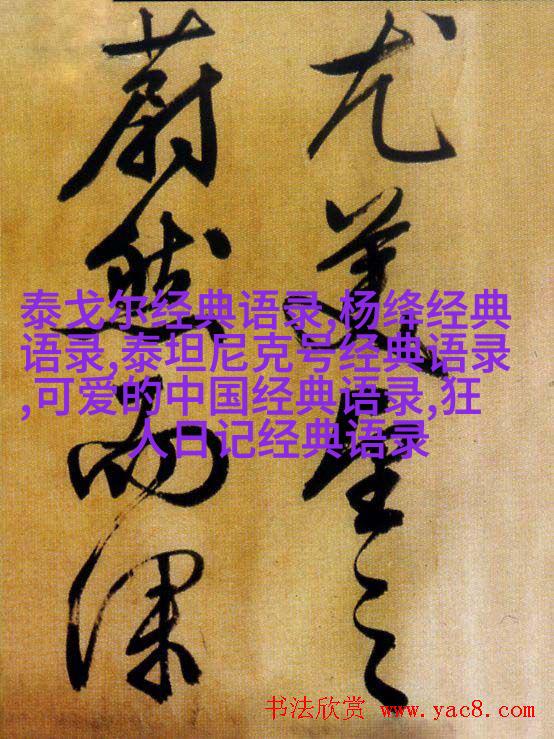 尤美望之
蔚然而深
泰戈尔经典语录,杨绛经典
语录,泰坦尼克号经典语录
,可爱的中国经典语录,狂
人日记经典语录
书法欣赏 www.yac8.com